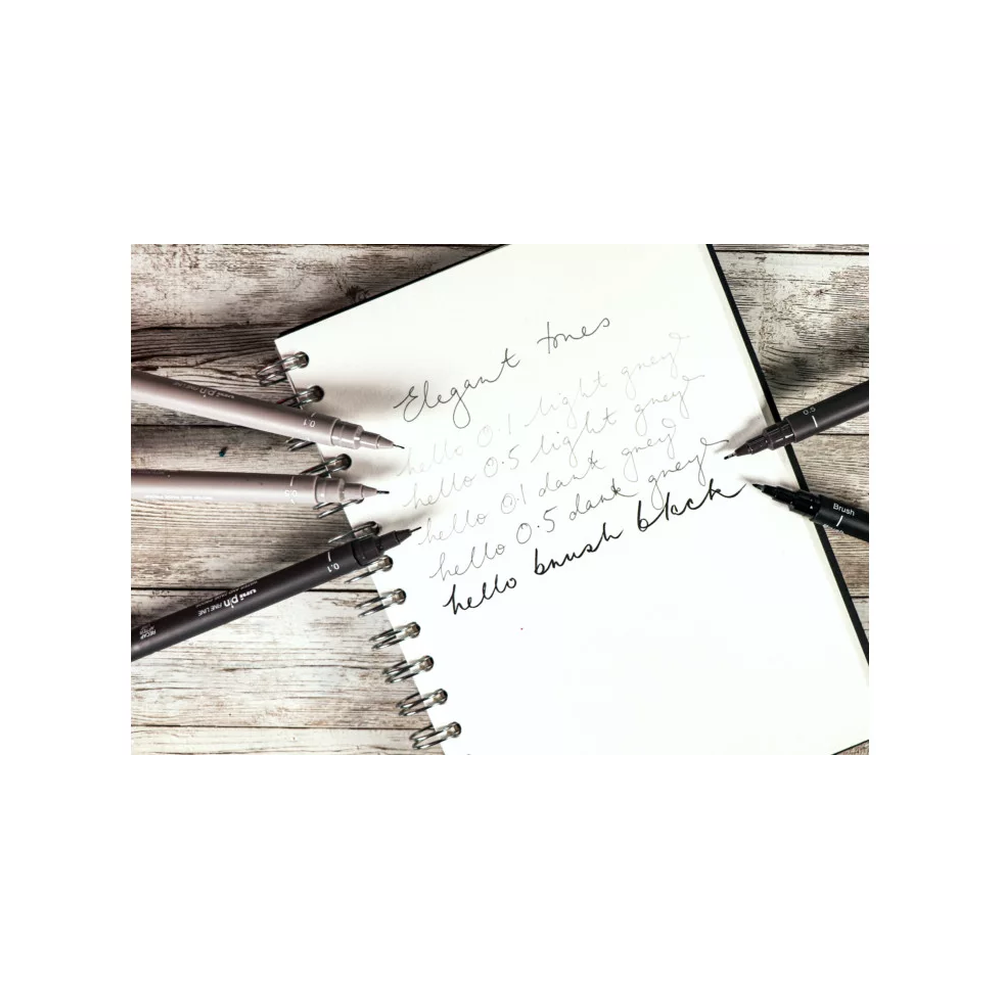 Elegant tones
hello 0.1 light grey
hello 0.5 light grey
hello 0.1 dark grey
hello 0.5 dark grey
hello brush black
uni pin
0.1
0.1
uni pin FINE LINE
0.5
Brush